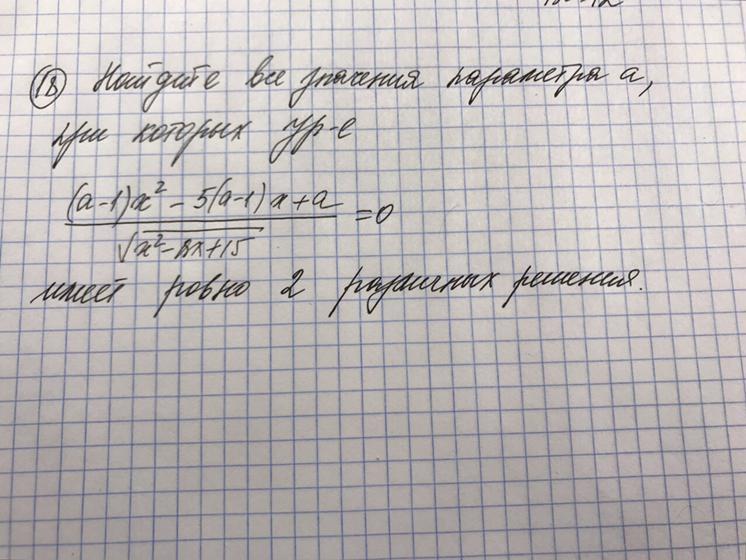 (18) Найдите все значения параметра a,
при которых ур-е
(a-1)x² - 5(a-1)x + a
√x²-8x+15
=0
имеет ровно 2 различных решения.